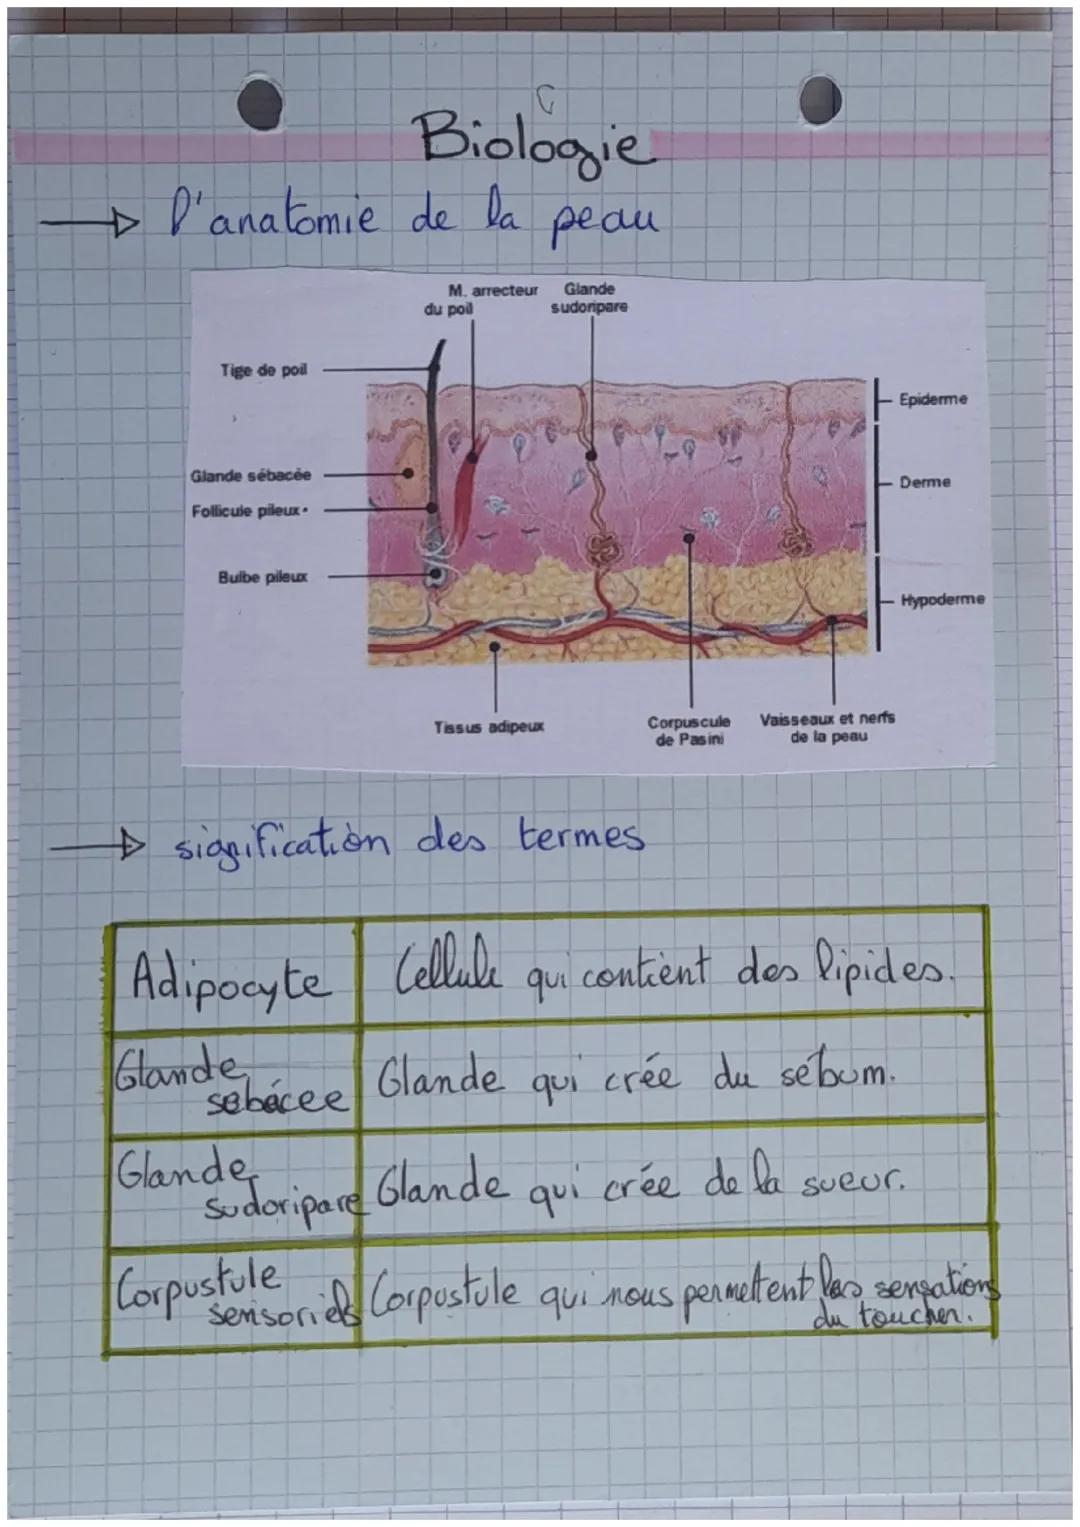 Biologie
l'anatomie de la peau
M. arrecteur
du poil
Glande
sudoripare
Tige de poil
Epiderme
Glande sébacée
Derme
Follicule pileux
Bulbe pileux
Hypoderme
Tissus adipeux
Corpuscule
de Pasini
Vaisseaux et nerfs
de la peau
signification des termes
Adipocyte
Cellule qui contient des lipides.
Glande
sebácee
Glande qui crée du sébum.
Glande
sudoripare
Glande qui crée de la sueur.
Corpustule
sensoriels
Corpustule qui nous permettent les sensations
du toucher.